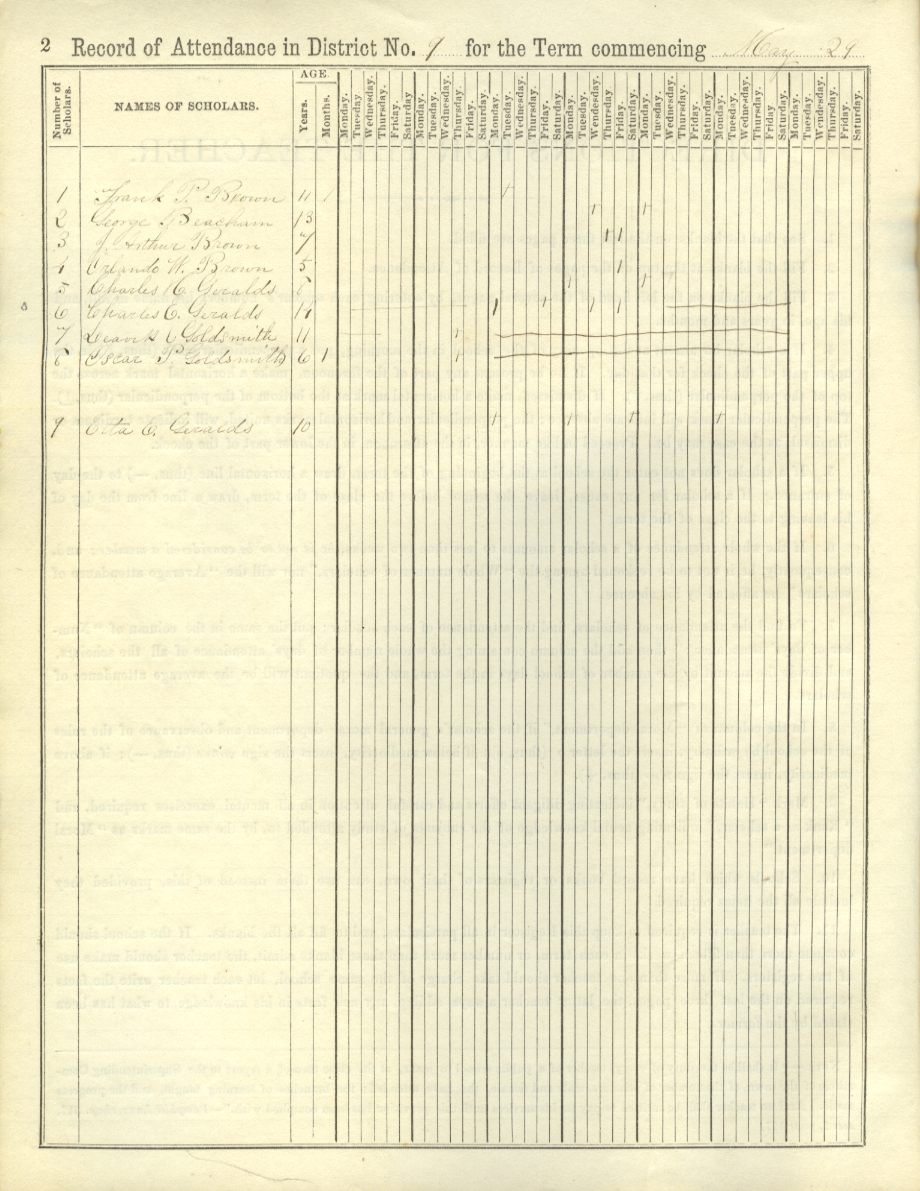 2 Record of Attendance in District No. 9 for the Term commencing May 29
Number of Scholars.
NAMES OF SCHOLARS.
AGE.
Years.
Months.
Monday. Tuesday. Wednesday. Thursday. Friday. Saturday. Monday. Tuesday. Wednesday. Thursday. Friday. Saturday. Monday. Tuesday. Wednesday. Thursday. Friday. Saturday. Monday. Tuesday. Wednesday. Thursday. Friday. Saturday. Monday. Tuesday. Wednesday. Thursday. Friday. Saturday. Monday. Tuesday. Wednesday. Thursday. Friday. Saturday. Monday. Tuesday. Wednesday. Thursday. Friday. Saturday.
1 Frank P. Brown 11 1
2 George Beacham 13
3 J. Arthur Brown 7
4 Orlando W. Brown 5
5 Charles H. Geralds 8
6 Charles E. Geralds 14
7 Goldsmith 11
8 Oscar P. Goldsmith 6 1
9 Etta E. Geralds 10